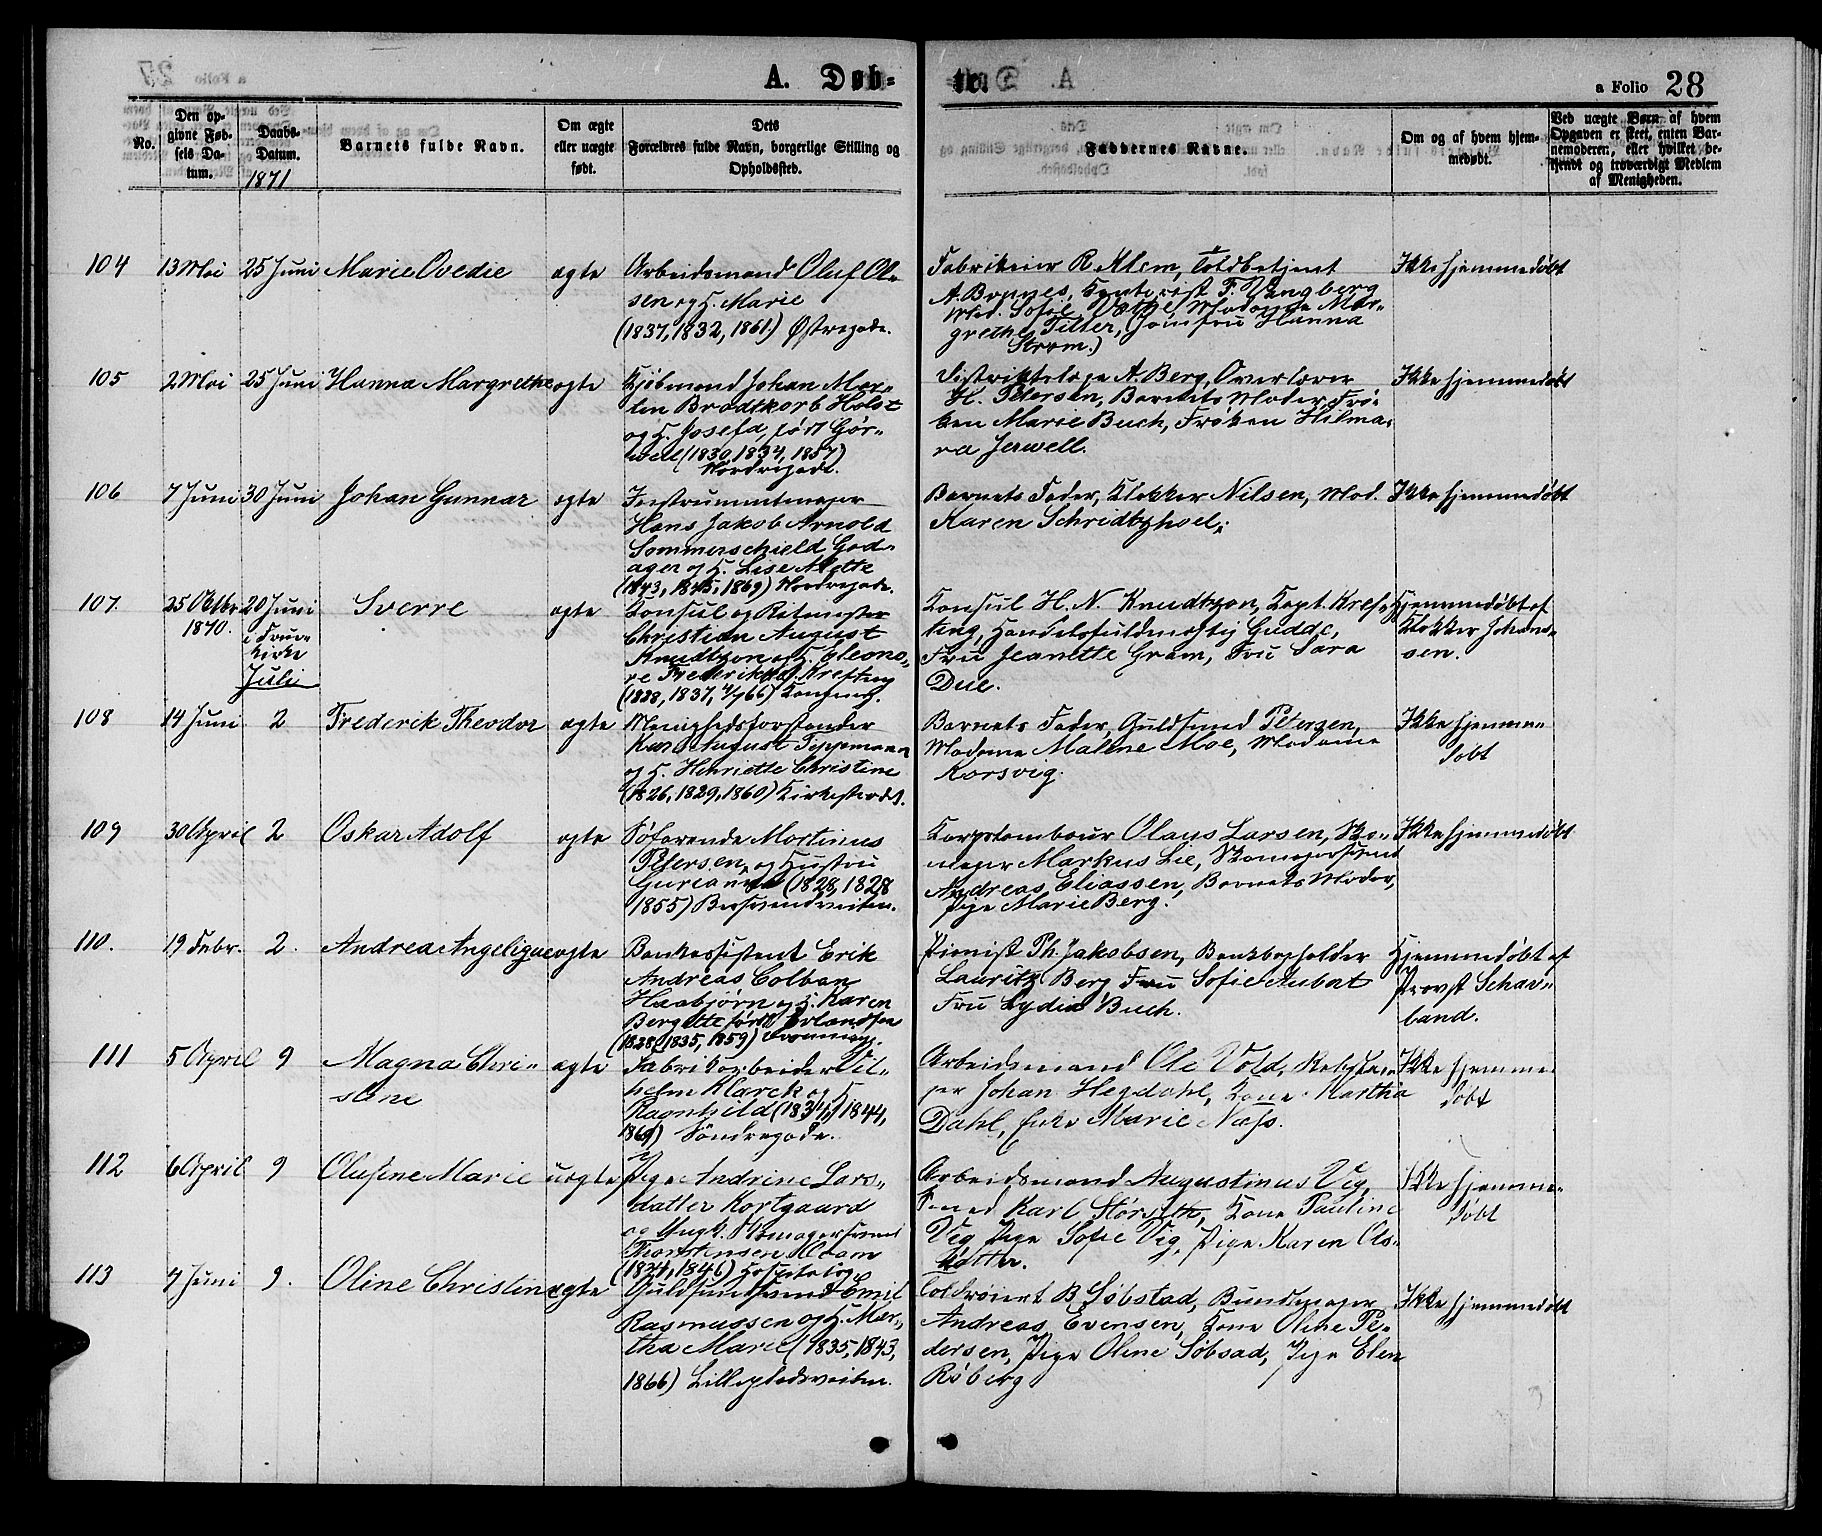 A. Døb-
te.
a Folio 28
No.
Den op-
givne Fød-
sels Da-
tum.
Daabs-
Datum.
1871
Barnets fulde Navn.
Om ægte
eller uægte
født.
Dets
Forældres fulde Navn, borgerlige Stilling og
Opholdssted.
Faddernes Navne.
Om og af hvem hjem-
medøbt.
Ved uægte Børn af hvem
Opgaven er skeet, enten Bar-
nemoderen, eller hvilket be-
kjendt og troværdigt Medlem
af Menigheden.
104
13 Mai
25 Juni
Marie Ovedie
ægte
Arbeidsmand Oluf Ol-
sen og H. Marie
(1837, 1832, 1861.) Østregade.
Fabrikeier R. Klem, Toldbetjent
A. Bonnes, Kontorist F. Vangberg
Mad. Sofie Madame Mar-
grethe Tiller, Jomfru Hanna
Strøm.)
Ikke hjemmedøbt
105
2 Mai
25 Juni
Hanna Margrethe
ægte
Kjøbmand Johan Mor-
ten Brodtkorb Holst
og H. Josefa, født Gør-
well (1830, 1834, 1857)
Nordregade.
Distriktslæge A. Berg, Overlærer
H. Petersen, Barnets Moder, Frø-
ken Marie Buch, Frøken Hilma-
ra Jerwell.
Ikke hjemmedøbt
106
7 Juni
30 Juni
Johan Gunnar
ægte
Instrumentmager
Hans Jakob Arnold
Sommerschield God-
ager og H. Lise Mette
(1843, 1845, 1869) Nordregade.
Barnets Fader, Klokker Nilsen, Mad.
Karen Schridtzhoel.
Ikke hjemmedøbt
107.
25 Oktbr
1870.
20 Juni
i Frue-
kirke
Juli
Sverre
ægte
Konsul og Ritmester
Christian August
Knudtzon og H. Eleono-
re Frederikke f. Krefting
(1828, 1837, 4/7 66) Kongensg.
Konsul H. N. Knudtzon, Kapt. Kref-
ting, Handelsfuldmægtig Gudde,
Fru Jeanette Gram, Fru Sara
Due.
Hjemmedøbt af
Klokker Johan-
sen.
108
14 Juni
2
Frederik Theodor
ægte
Menighedsforstander
Karl August Tippemann
og H. Henriette Christine
(1826, 1829, 1860) Kirkestrædet.
Barnets Fader, Guldsmed Petersen,
Madame Malene Moe, Madame
Korsvig.
Ikke hjemme-
døbt
109
30 April
2
Oskar Adolf
ægte
Søfarende Mortinus
Petersen, og Hustru
Guriana (1828, 1828
1855) Bersvendveiten.
Korpstambour Olaus Larsen, Sko-
mager Markus Lie, Skomagersvend
Andreas Eliassen, Barnets Moder,
Pige Marie Berg.
Ikke hjemmedøbt
110.
19 Febr.
2.
Andrea Angelique
ægte
Bankassistent Erik
Andreas Colban
Haabjørn og H. Karen
Bergitte født Erlandsen
(1828, 1835, 1859)
Pianist Ph. Jakobsen, Bankbogholder
Lauritz Berg, Fru Sofie Aubert
Fru Lydia Buch.
Hjemmedøbt af
Provst Schar-
land.
111
5 April
9
Magna Chri-
stine
ægte
Fabrikarbeider Vil-
helm Klarck og H.
Ragnhild (1834, 1844,
1869) Søndregade.
Arbeidsmand Ole Vold,
Johan Hegdahl, Kone Martha
Dahl, Enke Marie Næss.
Ikke hjemme
døbt
112
6 April
9
Olufine Marie
uægte
Pige Andrine Lars-
datter Kortgaard
og Ungk. Skomagersvend
Thorstensen
(1824, 1846)
Arbeidsmand Augustinus Vig,
Smed Karl Størseth, Kone Pauline
Vig, Pige Sofie Vig, Pige Karen Ols-
datter.
Ikke hjemme-
døbt
113
4 Juni
9.
Oline Christine
ægte
Guldsmedsvend Emil
Rasmussen og H. Mar-
tha Marie (1835, 1843,
1866) Lillepladsveiten.
B. Søbstad, Bundtmager
Andreas Evensen, Kone Oline Pe-
dersen, Pige Oline Søbsad, Pige Elen
Røberg
Ikke hjemmedøbt